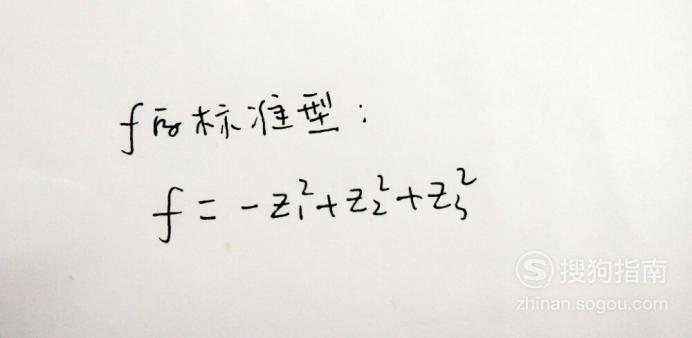 f的标准型：
f = -z₁² + z₂² + z₃²
搜狗指南
zhinan.sogou.com